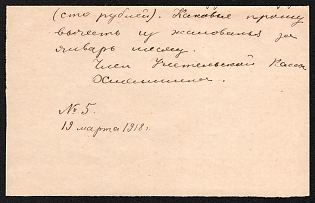 (сто рублей). Каковые прошу
вычесть из жалованья за
январь месяц.
Член Учительской Кассы
№ 5.
19 марта 1918 г.